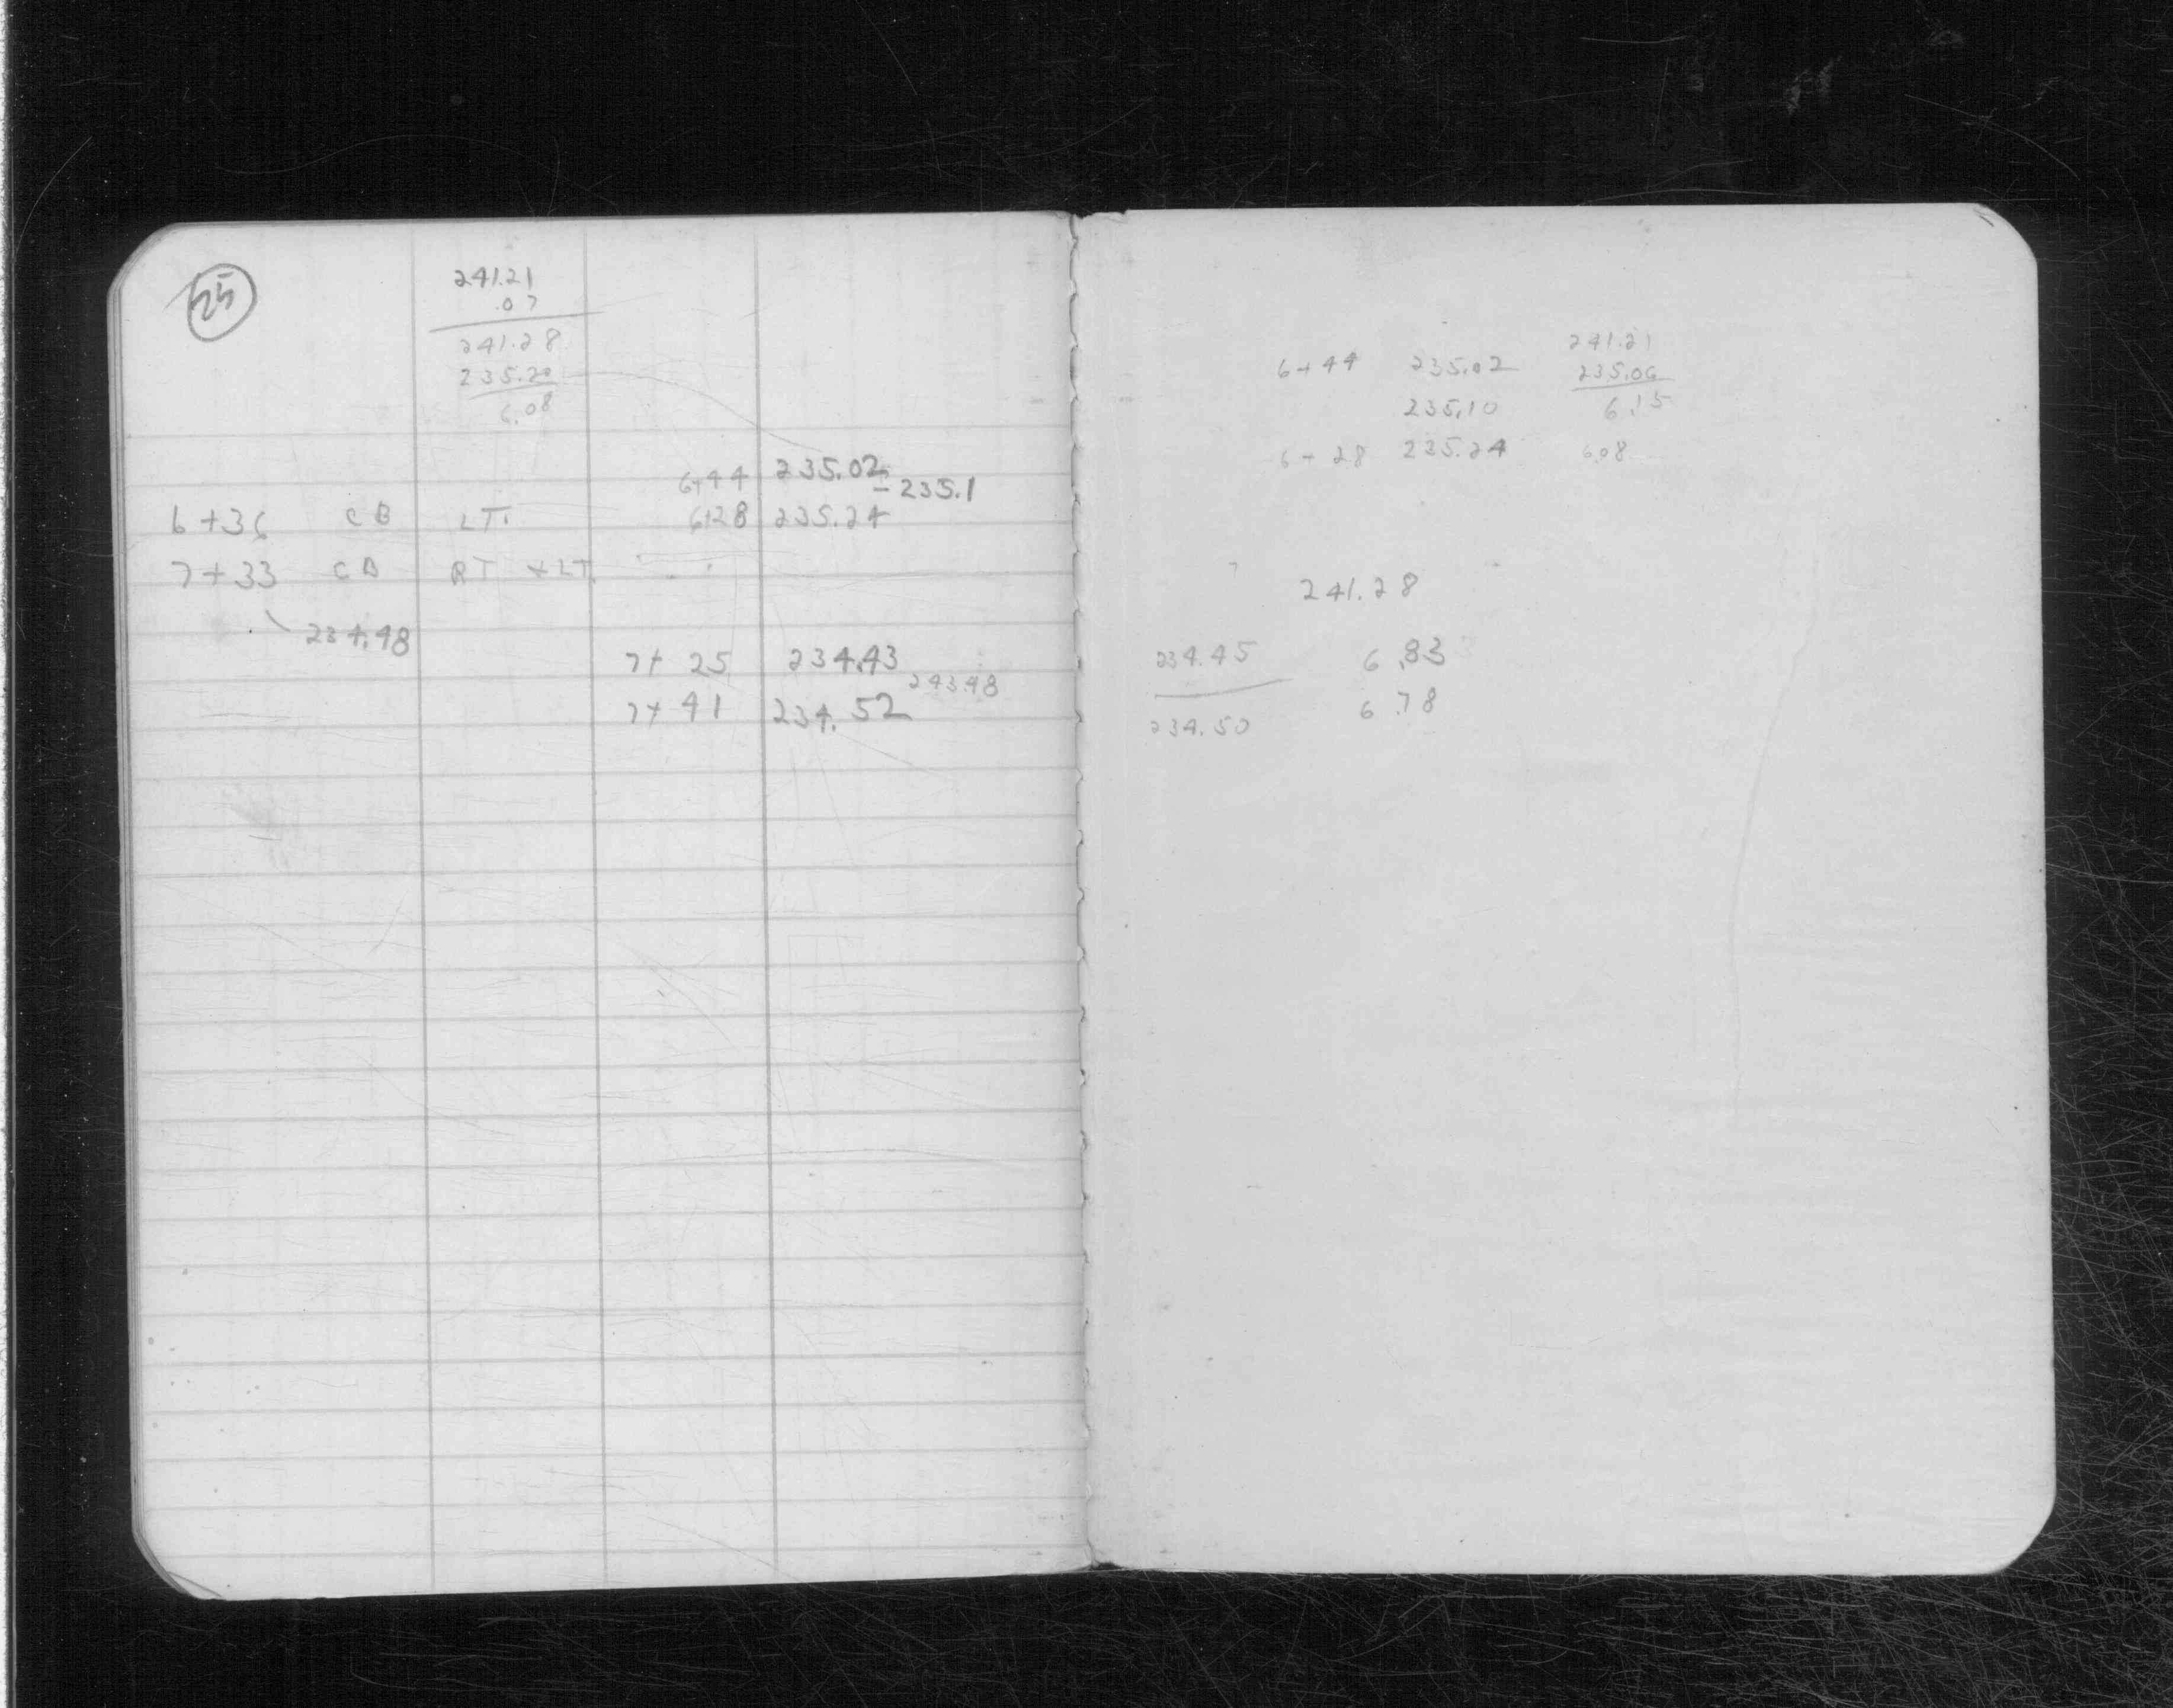 25
241.21
.07
241.28
235.20
6.08
6+44 235.02
- 235.1
6+36 CB LT. 6+28 235.24
7+33 CB RT + LT.
234.48
7+ 25 234.43
243.48
7+ 41 234.52
241.21
6+44 235.02 235.06
235.10 6.15
6+28 235.24 6.08
241.28
234.45 6.83
234.50 6.78